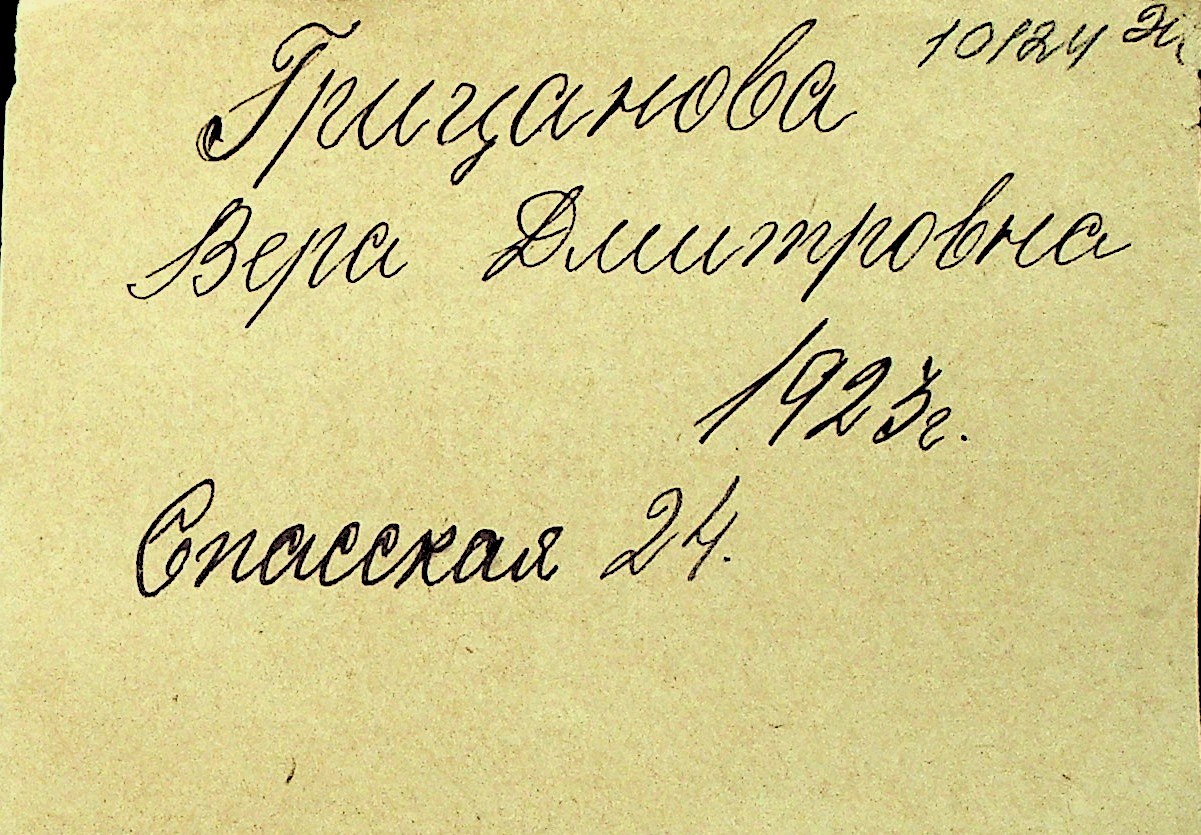 10124
Грицанова
Вера Дмитровна
1923г.
Спасская 24.